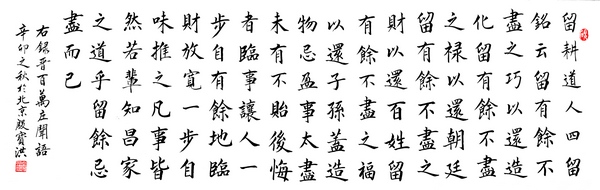 留耕道人四留
銘云留有餘不
盡之巧以還造
化留有餘不盡
之禄以還朝廷
留有餘不盡之
財以還百姓留
有餘不盡之福
以還子孫蓋造
物忌盈事太盡
未有不貽後悔
者臨事讓人一
步自有餘地臨
財放寬一步自
味推之凡事皆
然若輩知昌家
之道乎留餘忌
盡而已
右錄百萬庄語
辛卯之秋於北京殷寶洪